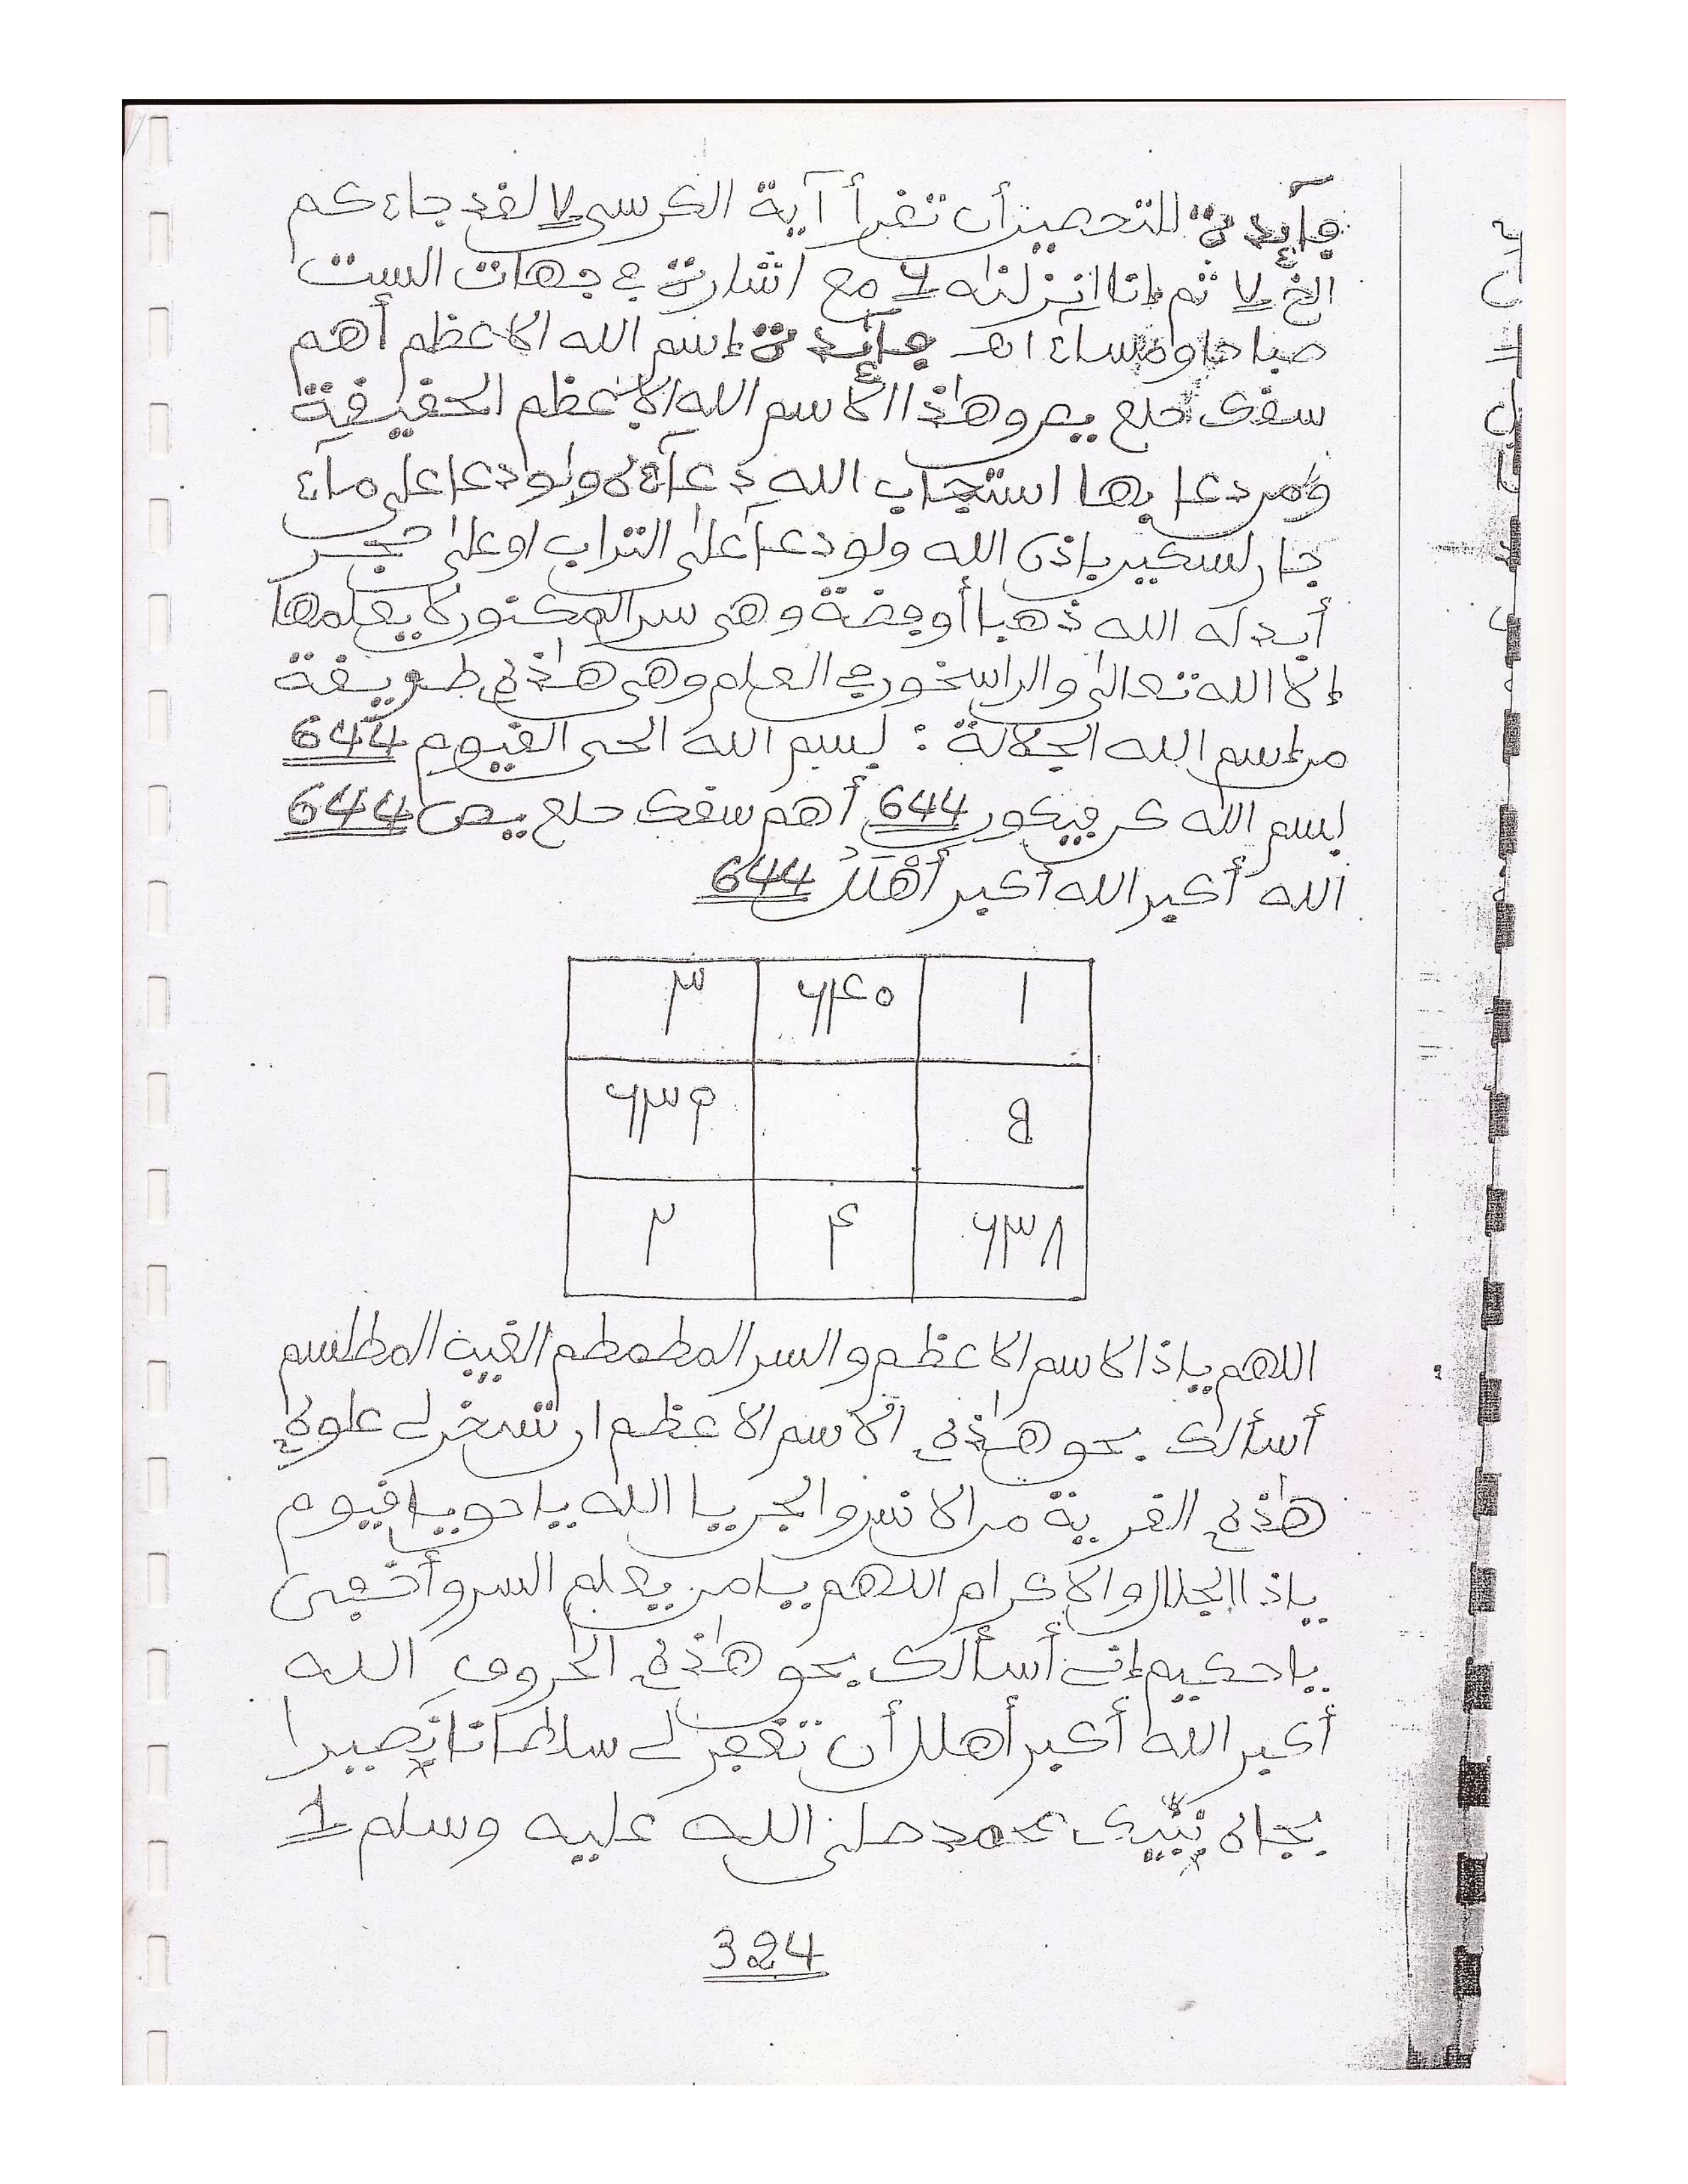 فآيدة للتحصين أن تقرأ آية الكرسى 7 لقد جاءكم
الخ 7 ثم إنا انزلناه 7 مع اشارة في جهات الست
صباحا ومساء اهـ فآيدة إسم الله الاعظم أهم
سقك حلع يص وهذا الاسم الله الاعظم الحقيقة
ومن دعا بها استجاب الله دعآءه ولو دعا على مآء
جار لسكن باذن الله ولو دعا على التراب او على حجر
أبدله الله ذهبا أو فضة وهى سر المكنون لا يعلمها
إلا الله تعالى والراسخون في العلم وهى هذه طريقة
من إسم الله الجلالة : بسم الله الحى القيوم 644
بسم الله كن فيكون 644 أهم سقك حلع يص 644
الله أكبر الله أكبر أهلل 644
١ ٦٤٠ ٣
8 ٦٣٩
٦٣٨ ٤ ٢
اللهم ياذا الاسم الاعظم والسر المطمطم الغيب المطلسم
أسألك بحق هذه الاسم الاعظم ان تسخر لى
هذه القرية من الانس والجن يا الله يا حى يا قيوم
ياذا الجلال والاكرام اللهم يا من يعلم السر وأخفى
يا حكيم إنى أسألك بحق هذه الحروف الله
أكبر الله أكبر أهلل أن لى سلطانا نصيرا
بجاه محمد صلى الله عليه وسلم 1
324